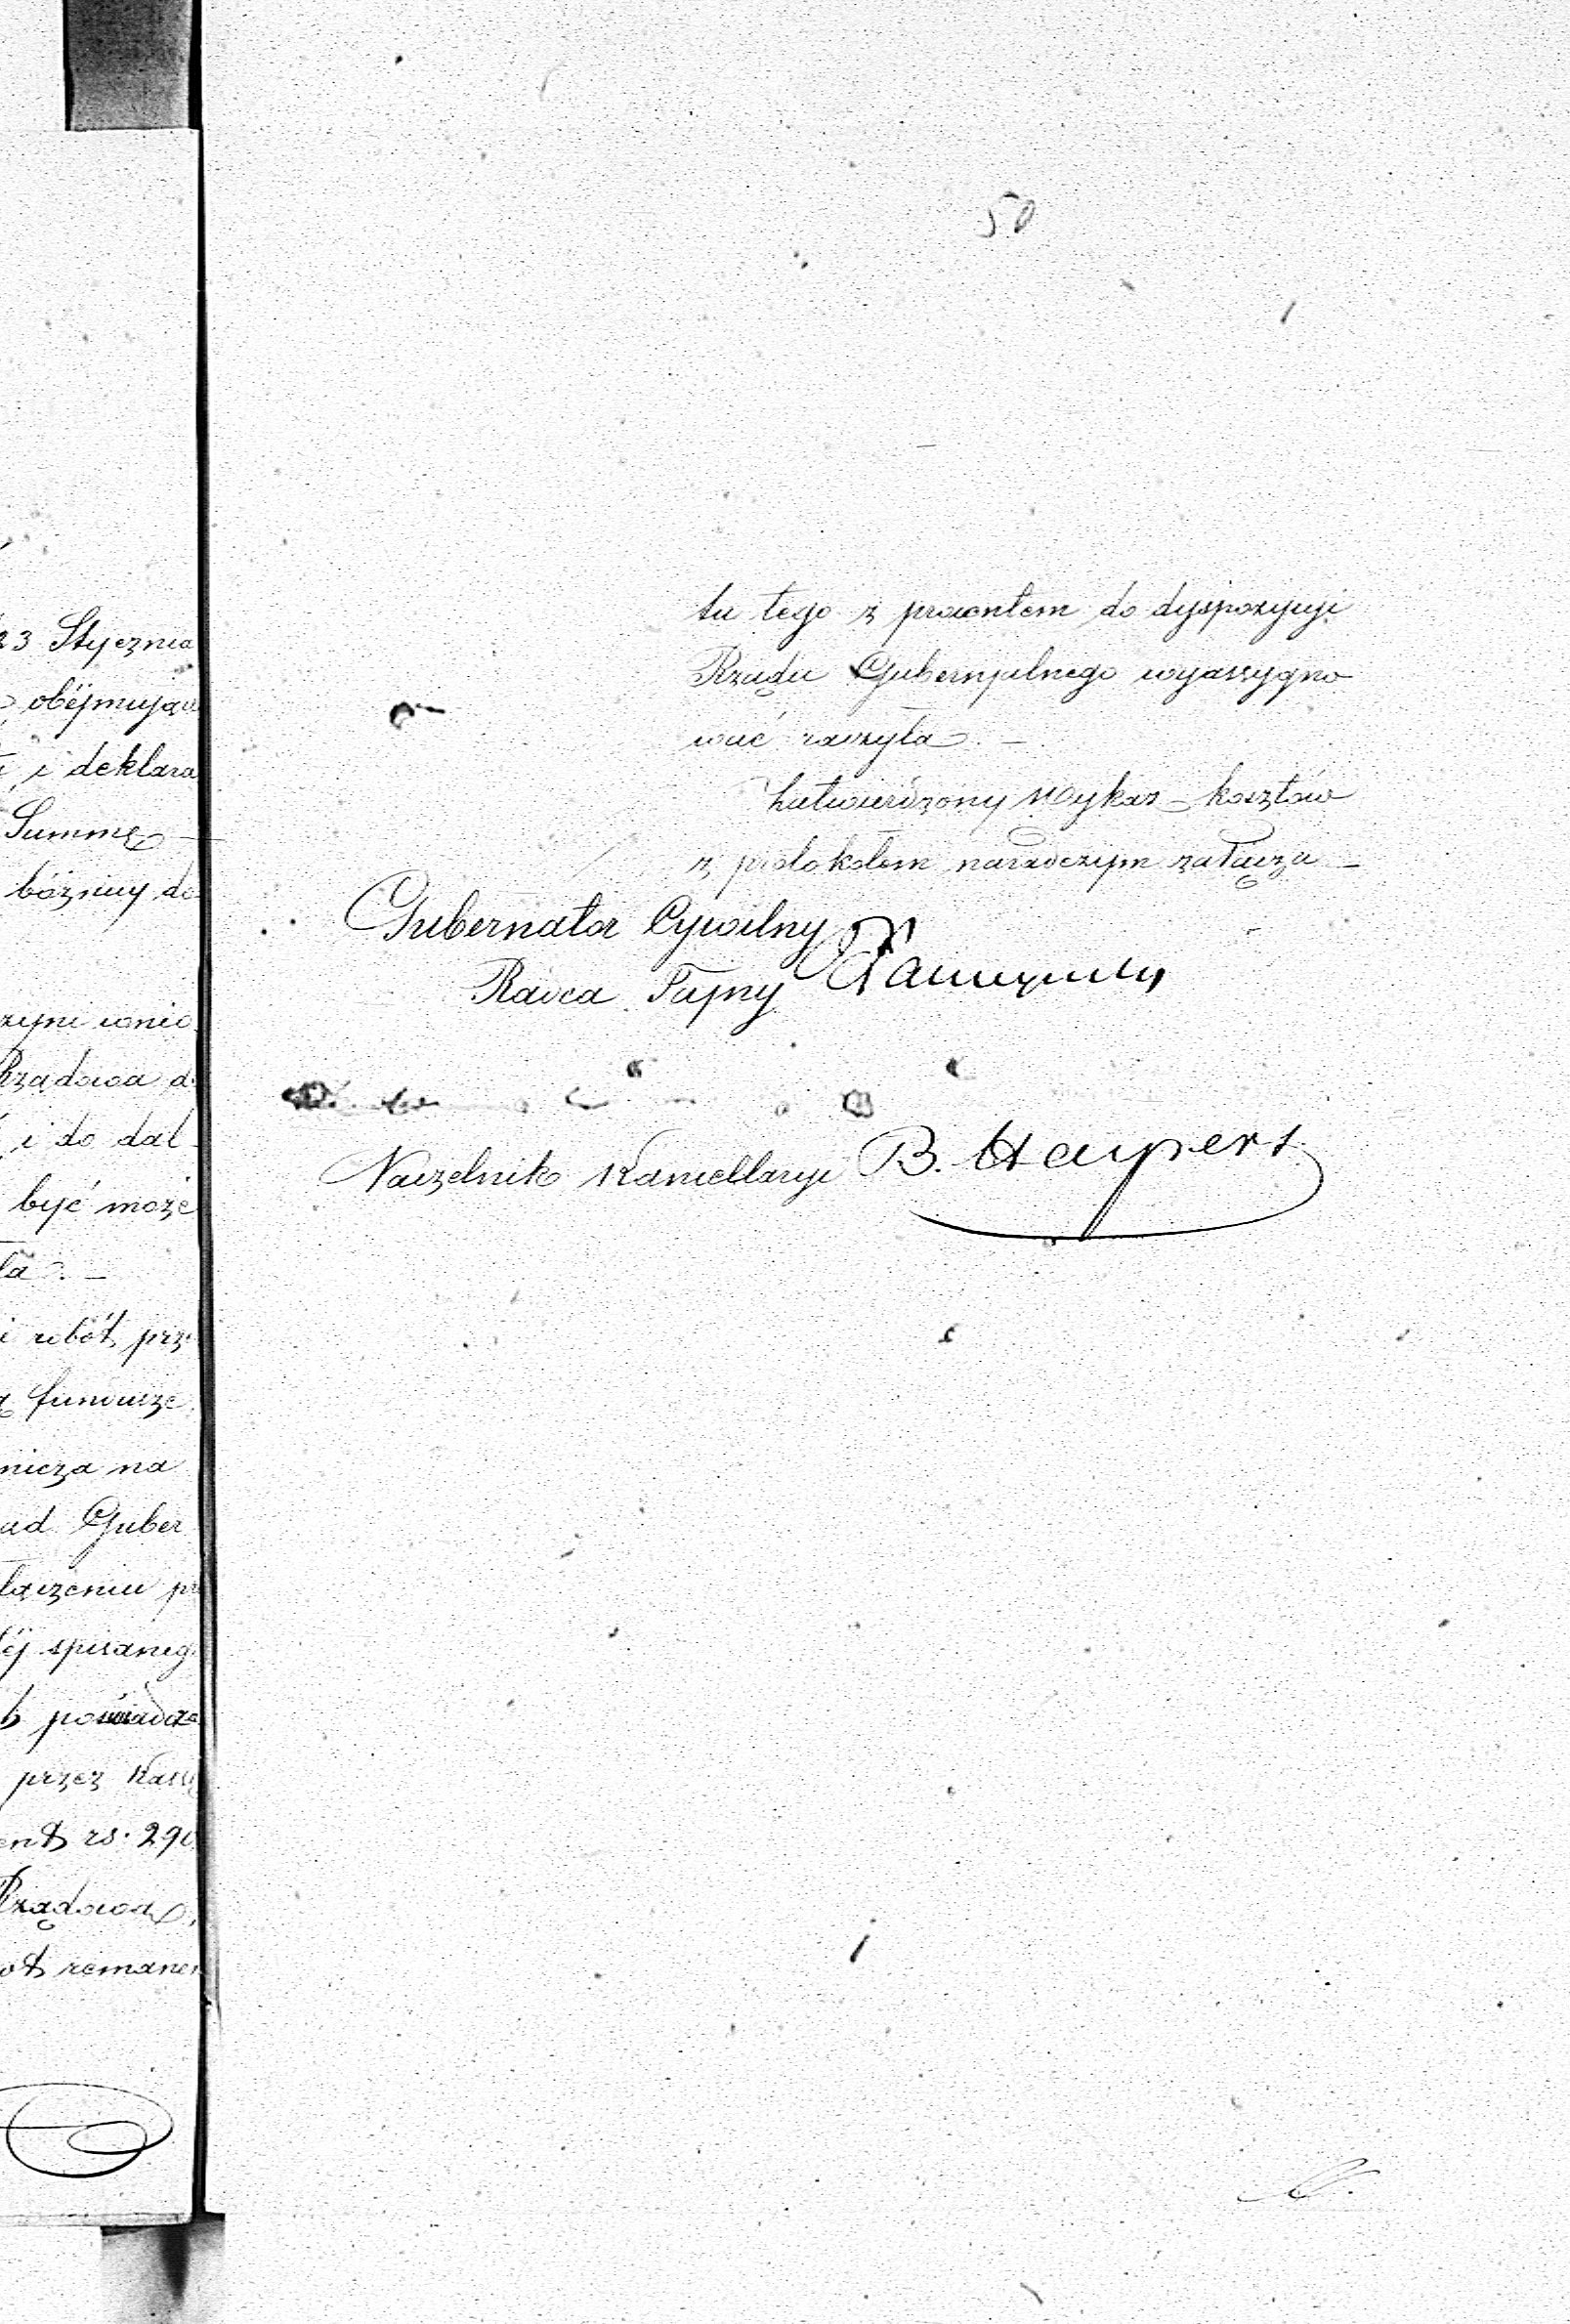 23 Stycznia
obéjmując
i deklara
Summę
bóżnicy do
Rządowa d
i do dal
być może
ła. —
i robót prz
fundusze
nicza na
ad Guber
łączeniu pr
éj spisaneg
poświadcze
przez Kass
ent rs. 290
Rządowa,
ot remanen
50
tu tego z procentem do dyspozycyi
Rządu Gubernialnego wyassygno
wać raczyła. —
Zatwierdzony Wykaz kosztów
z protokołem naradczym załącza —
Gubernator Cywilny
Radca Tajny
Naczelnik Kancellaryi B.